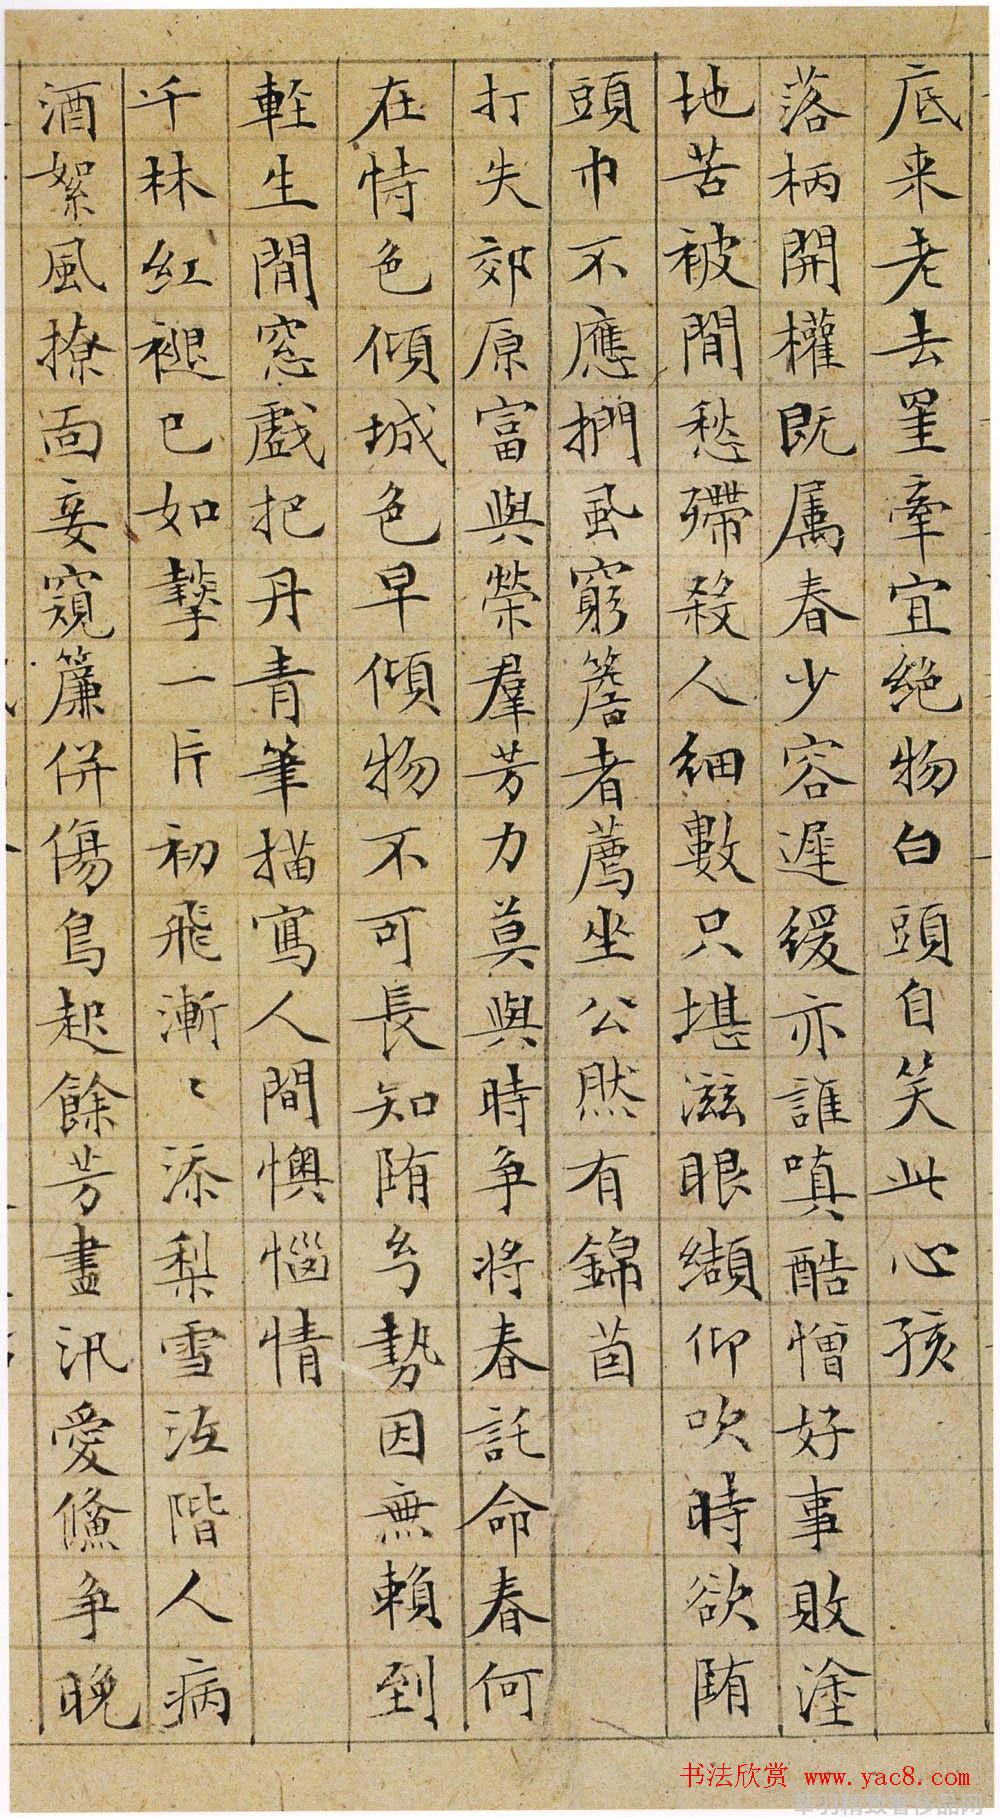 底来老去罣牽宜絶物白頭自笑此心孩
落柄開權既属春少容遲緩亦誰嗔酷憎好事敗塗
地苦被閒愁殢殺人細數只堪滋眼纈仰吹時欲隋
頭巾不應捫虱窮簷者薦坐公然有錦茵
打失郊原富與榮羣芳力莫與時争将春託命春何
在恃色傾城色早傾物不可長知隋㐧勢因無賴到
輊生閒窓戲把丹青筆描寫人間懊惱情
千林紅褪已如摰一片初飛漸〻添梨雪沍階人病
酒絮風撩面妾窺簾併傷鳥起餘芳盡汛愛儵争晚
书法欣赏 www.yac8.com